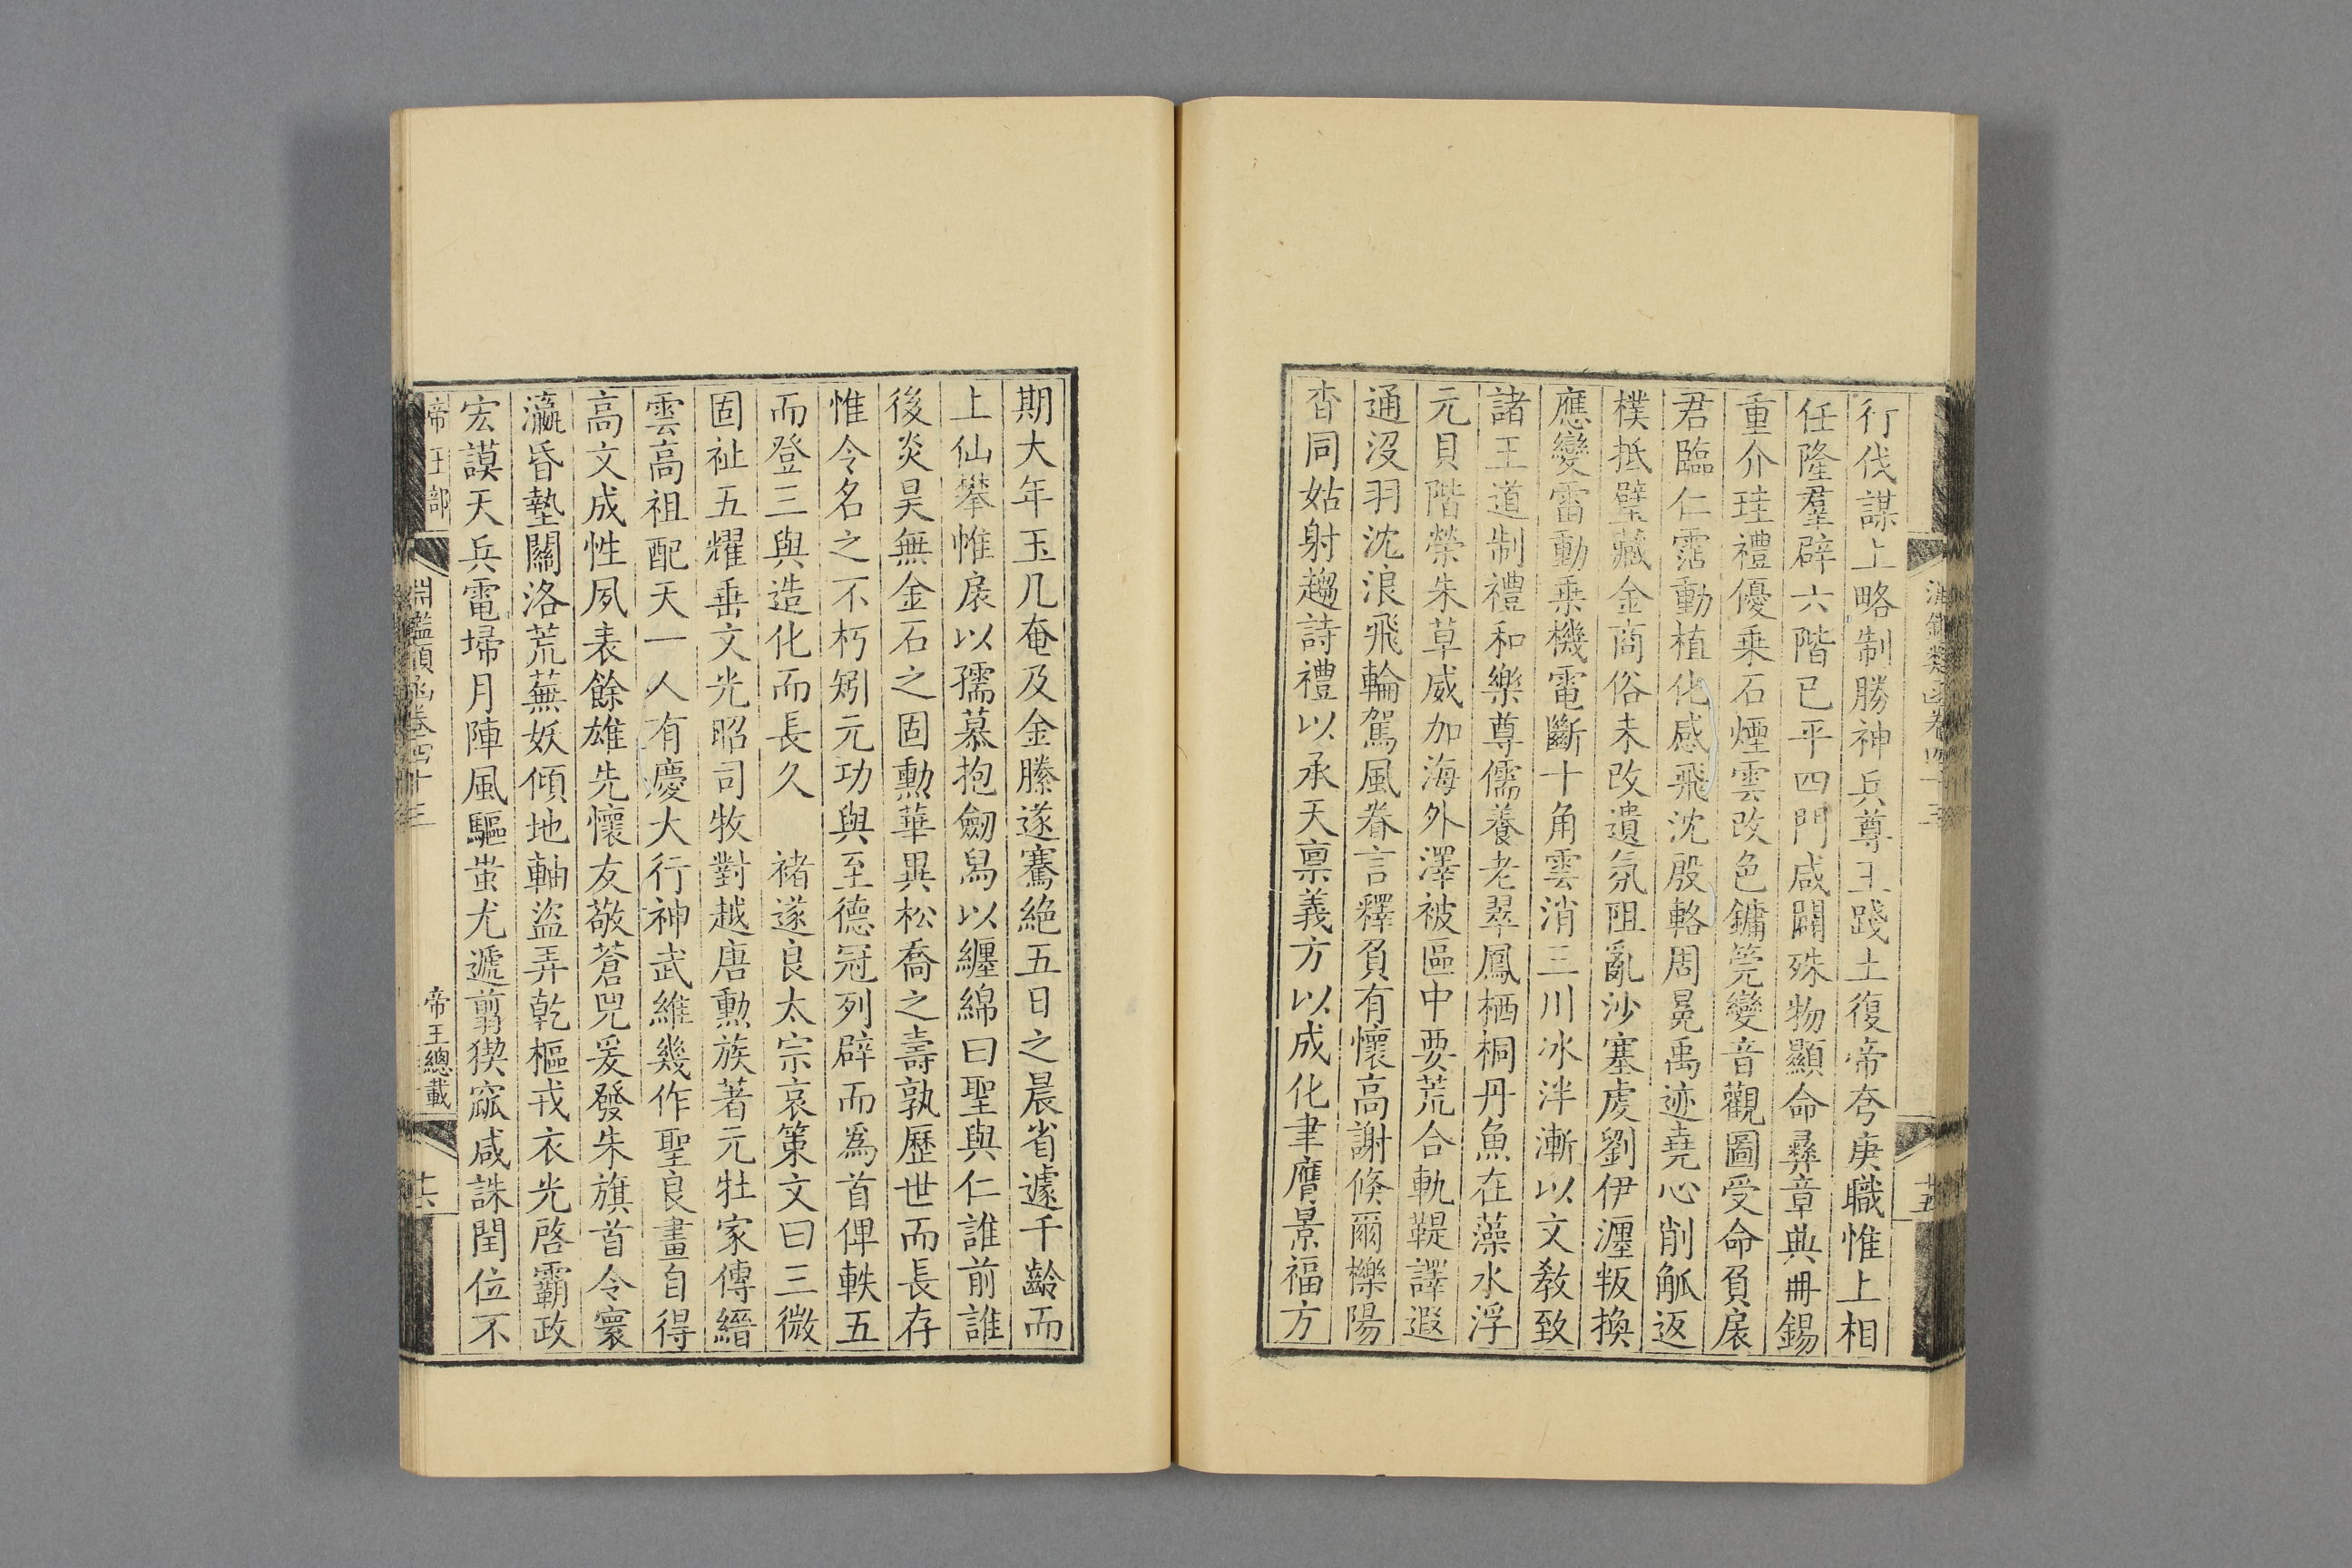 行伐謀上略制勝神兵尊王踐土復帝夸庚職惟上相
任隆羣辟六階已平四門咸闢殊物顯命彝章典冊錫
重介珪禮優乗石煙雲改色鏞筦變音觀圖受命負扆
君臨仁霑動植化感飛沈殷輅周冕禹迹堯心削觚返
樸抵璧藏金商俗未改遺氛阻亂沙塞虔劉伊瀍叛換
應變雷動乗機電斷十角雲消三川冰泮漸以文教致
諸王道制禮和樂尊儒養老翠鳳栖桐丹魚在藻水浮
元貝階榮朱草威加海外澤被區中要荒合軌鞮譯遐
通沒羽沈浪飛輪駕風眷言釋負有懷高謝倏爾櫟陽
杳同姑射趨詩禮以承天禀義方以成化聿膺景福方
淵鑑類函卷四十三
廿五
期大年玉几奄及金縢遂騫絶五日之晨省遽千齡而
上仙攀帷扆以孺慕抱劒舄以纒綿曰聖與仁誰前誰
後炎昊無金石之固勲華異松喬之壽孰歷世而長存
惟令名之不朽矧元功與至德冠列辟而爲首俾軼五
而登三與造化而長久　褚遂良太宗哀策文曰三微
固祉五耀垂文光昭司牧對越唐勲族著元牡家傳縉
雲高祖配天一人有慶大行神武維幾作聖良畫自得
高文成性夙表餘雄先懷友敬蒼兕爰發朱旗首令寰
瀛昏墊關洛荒蕪妖傾地軸盜弄乾樞戎衣光啓霸政
宏謨天兵電埽月陣風驅蚩尤遞翦猰窳咸誅閏位不
帝王部
淵鑑類函卷四十三
帝王總載
廿六